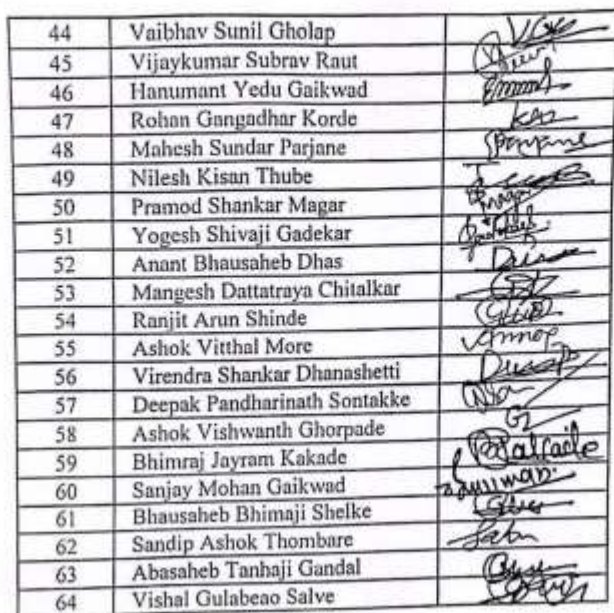 44 Vaibhav Sunil Gholap
45 Vijaykumar Subrav Raut
46 Hanumant Yedu Gaikwad
47 Rohan Gangadhar Korde
48 Mahesh Sundar Parjane SParjane
49 Nilesh Kisan Thube
50 Pramod Shankar Magar
51 Yogesh Shivaji Gadekar
52 Anant Bhausaheb Dhas
53 Mangesh Dattatraya Chitalkar
54 Ranjit Arun Shinde
55 Ashok Vitthal More
56 Virendra Shankar Dhanashetti
57 Deepak Pandharinath Sontakke
58 Ashok Vishwanth Ghorpade
59 Bhimraj Jayram Kakade
60 Sanjay Mohan Gaikwad
61 Bhausaheb Bhimaji Shelke
62 Sandip Ashok Thombare
63 Abasaheb Tanhaji Gandal
64 Vishal Gulabeao Salve